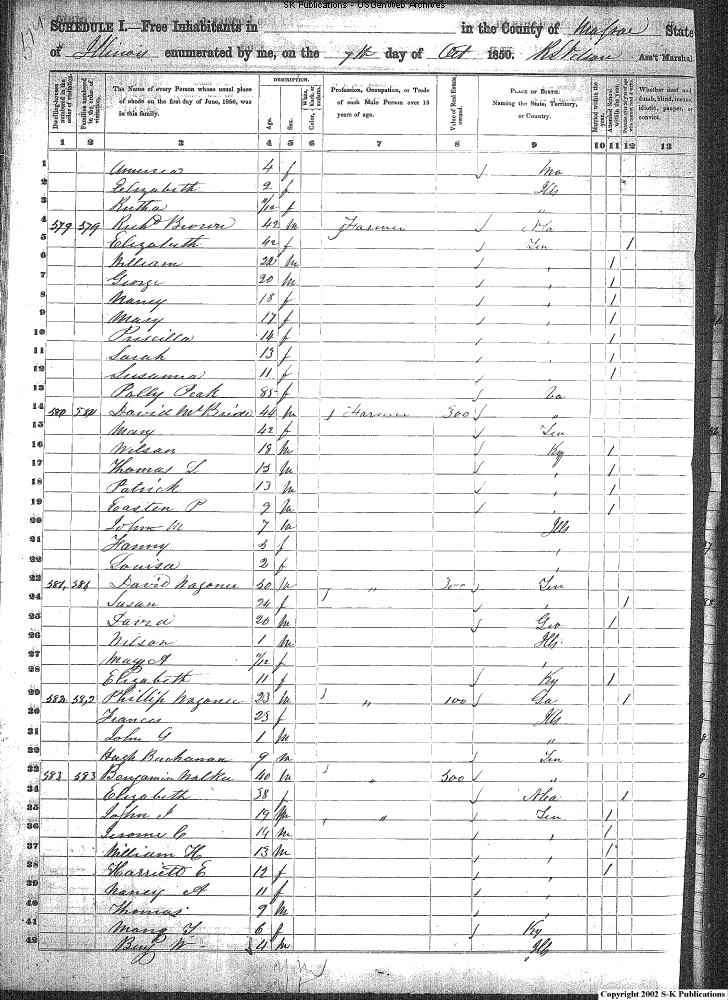 SK Publications - USGenWeb Archives
SCHEDULE I.—Free Inhabitants in in the County of Monroe State
of Illinois enumerated by me, on the 7th day of Oct 1850. Ass't Marshal
DESCRIPTION.
Dwelling-houses numbered in the order of visitation.
Families numbered in the order of visitation.
The Name of every Person whose usual place of abode on the first day of June, 1850, was in this family.
Age.
Sex.
Color, White, black, or mulatto.
Profession, Occupation, or Trade of each Male Person over 15 years of age.
Value of Real Estate owned.
PLACE OF BIRTH. Naming the State, Territory, or Country.
Married within the year.
Attended School within the year.
Whether deaf and dumb, blind, insane, idiotic, pauper, or convict.
1 2 3 4 5 6 7 8 9 10 11 12 13
1 4 f Mo
2 Elizabeth 2 f Ills
3 Rutha /12 f "
4 579 579 Richd Brown 42 m Farmer
5 Elizabeth 42 f Ten 1
6 William 22 m " 1
7 George 20 m " 1
8 Nancy 18 f " 1
9 Mary 17 f " 1
10 Priscilla 14 f " 1
11 Sarah 13 f " 1
12 Susanna 11 f " 1
13 Polly Peak 85 f Va
14 580 580 David McBride 44 m Farmer 300 "
15 Mary 42 f Ten
16 Wilson 18 m Ky 1
17 Thomas L 15 m " 1
18 Patrick 13 m " 1
19 Easten P 9 m " 1
20 John M 7 m Ills
21 Fanny 5 f "
22 Louisa 2 f "
23 581 581 David Wagoner 50 m " 300 Ten
24 Susan 24 f " 1
25 David 20 m Geo 1
26 Wilson 1 m Ills
27 Mary A /12 f "
28 Elizabeth 11 f Ky 1
29 582 582 Phillip Wagoner 23 m " 100 Ga 1
30 Frances 23 f Ills
31 John G 1 m "
32 Hugh Buchanan 9 m Ten
33 583 583 Benjamin Walker 40 m " 500 "
34 Elizabeth 38 f Ala 1
35 John J 19 m " Ten 1
36 Jerome C 14 m " 1
37 William H 13 m " 1
38 Harriett E 12 f " 1
39 Nancy A 11 f "
40 Thomas 9 m "
41 6 f Ky
42 Benj W 4 m Ills
Copyright 2002 S-K Publications